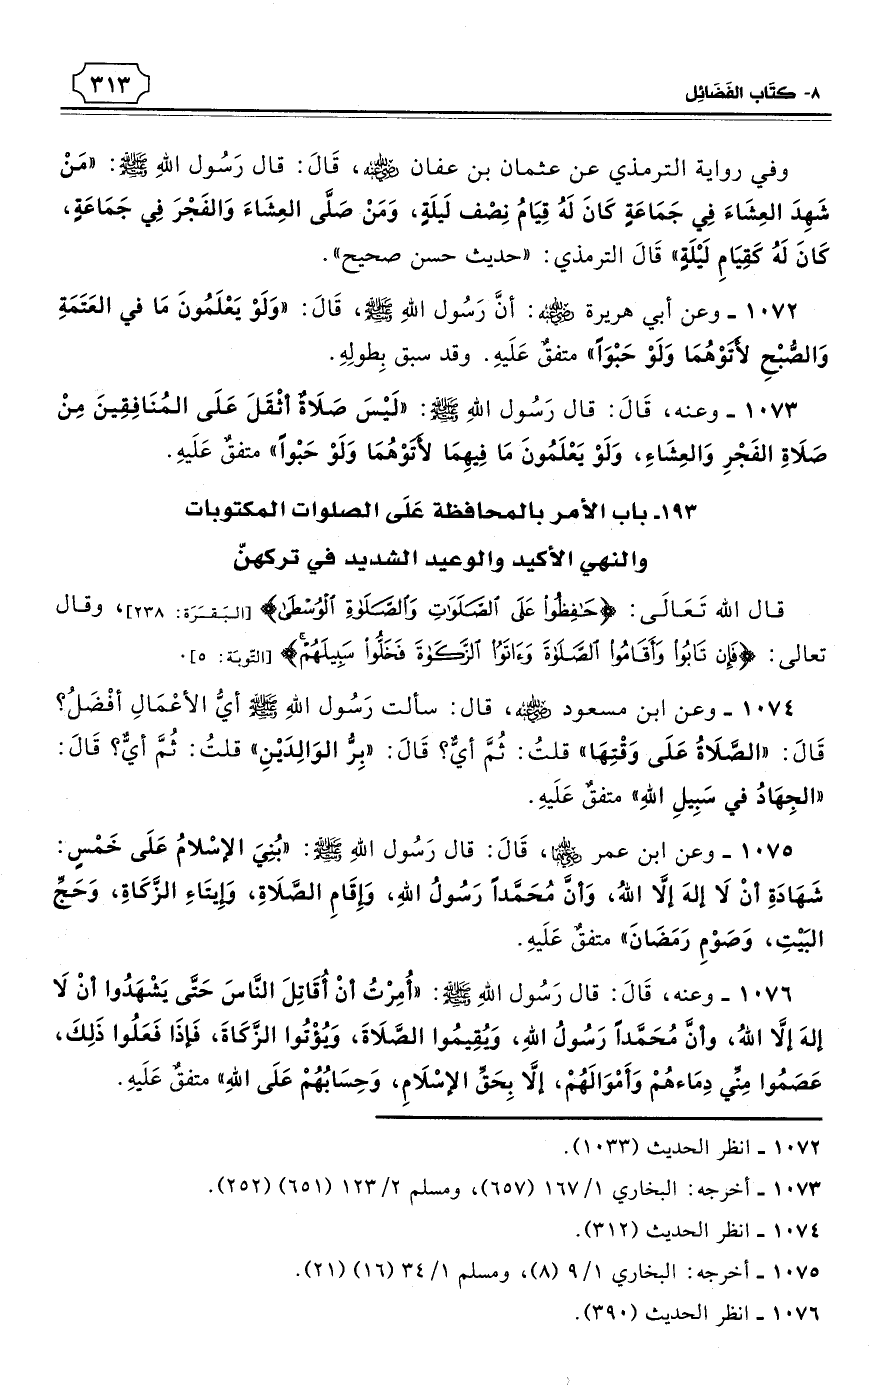 ٨- كتَاب الفَضَائِل
٣١٣
وفي رواية الترمذي عن عثمان بن عفان رضي الله عنه، قَالَ: قال رَسُول اللهِ ﷺ: «مَنْ
شَهِدَ العِشَاءَ فِي جَمَاعَةٍ كَانَ لَهُ قِيَامُ نِصْف لَيلَةٍ، وَمَنْ صَلَّى العِشَاءَ وَالفَجْرَ فِي جَمَاعَةٍ،
كَانَ لَهُ كَقِيَامِ لَيْلَةٍ» قَالَ الترمذي: «حديث حسن صحيح».
١٠٧٢ ـ وعن أبي هريرة رضي الله عنه: أنَّ رَسُول اللهِ ﷺ، قَالَ: «وَلَوْ يَعْلَمُونَ مَا في العَتَمَةِ
وَالصُّبْحِ لأَتَوْهُمَا وَلَوْ حَبْوَاً» متفقٌ عَلَيهِ. وقد سبق بِطولِهِ.
١٠٧٣ ـ وعنه، قَالَ: قال رَسُول اللهِ ﷺ: «لَيْسَ صَلَاةٌ أثْقَلَ عَلَى المُنَافِقِينَ مِنْ
صَلَاةِ الفَجْرِ وَالعِشَاءِ، وَلَوْ يَعْلَمُونَ مَا فِيهِمَا لأَتَوْهُمَا وَلَوْ حَبْواً» متفقٌ عَلَيهِ.
١٩٣ـ باب الأمر بالمحافظة عَلَى الصلوات المكتوبات
والنهي الأكيد والوعيد الشديد في تركهنّ
قال الله تَعَالَى: ﴿حَٰفِظُواْ عَلَى ٱلصَّلَوَٰتِ وَٱلصَّلَوٰةِ ٱلْوُسْطَىٰ﴾ [البَقَرَة: ٢٣٨]، وقال
تعالى: ﴿فَإِن تَابُواْ وَأَقَامُواْ ٱلصَّلَوٰةَ وَءَاتَوُاْ ٱلزَّكَوٰةَ فَخَلُّواْ سَبِيلَهُمْۚ﴾ [التّوبَة: ٥].
١٠٧٤ ـ وعن ابن مسعود رضي الله عنه، قال: سألت رَسُول اللهِ ﷺ أيُّ الأعْمَالِ أفْضَلُ؟
قَالَ: «الصَّلَاةُ عَلَى وَقْتِهَا» قلتُ: ثُمَّ أيٌّ؟ قَالَ: «بِرُّ الوَالِدَيْنِ» قلتُ: ثُمَّ أيٌّ؟ قَالَ:
«الجِهَادُ في سَبِيلِ اللهِ» متفقٌ عَلَيهِ.
١٠٧٥ ـ وعن ابن عمر رضي الله عنهما، قَالَ: قال رَسُول اللهِ ﷺ: «بُنِيَ الإسْلامُ عَلَى خَمْسٍ:
شَهَادَةِ أنْ لَا إلهَ إلَّا اللهُ، وَأنَّ مُحَمَّداً رَسُولُ اللهِ، وَإقَامِ الصَّلَاةِ، وَإيتَاءِ الزَّكَاةِ، وَحَجِّ
البَيْتِ، وَصَوْمِ رَمَضَانَ» متفقٌ عَلَيهِ.
١٠٧٦ ـ وعنه، قَالَ: قال رَسُول اللهِ ﷺ: «أُمِرْتُ أنْ أُقَاتِلَ النَّاسَ حَتَّى يَشْهَدُوا أنْ لَا
إلهَ إلَّا اللهُ، وأنَّ مُحَمَّداً رَسُولُ اللهِ، وَيُقِيمُوا الصَّلَاةَ، وَيُؤْتُوا الزَّكَاةَ، فَإذَا فَعَلُوا ذَلِكَ،
عَصَمُوا مِنِّي دِمَاءهُمْ وَأمْوَالَهُمْ، إلَّا بِحَقِّ الإسْلَامِ، وَحِسَابُهُمْ عَلَى اللهِ» متفقٌ عَلَيهِ.
١٠٧٢ ـ انظر الحديث (١٠٣٣).
١٠٧٣ ـ أخرجه: البخاري ١/ ١٦٧ (٦٥٧)، ومسلم ٢/ ١٢٣ (٦٥١) (٢٥٢).
١٠٧٤ ـ انظر الحديث (٣١٢).
١٠٧٥ ـ أخرجه: البخاري ١/ ٩ (٨)، ومسلم ١/ ٣٤ (١٦) (٢١).
١٠٧٦ ـ انظر الحديث (٣٩٠).